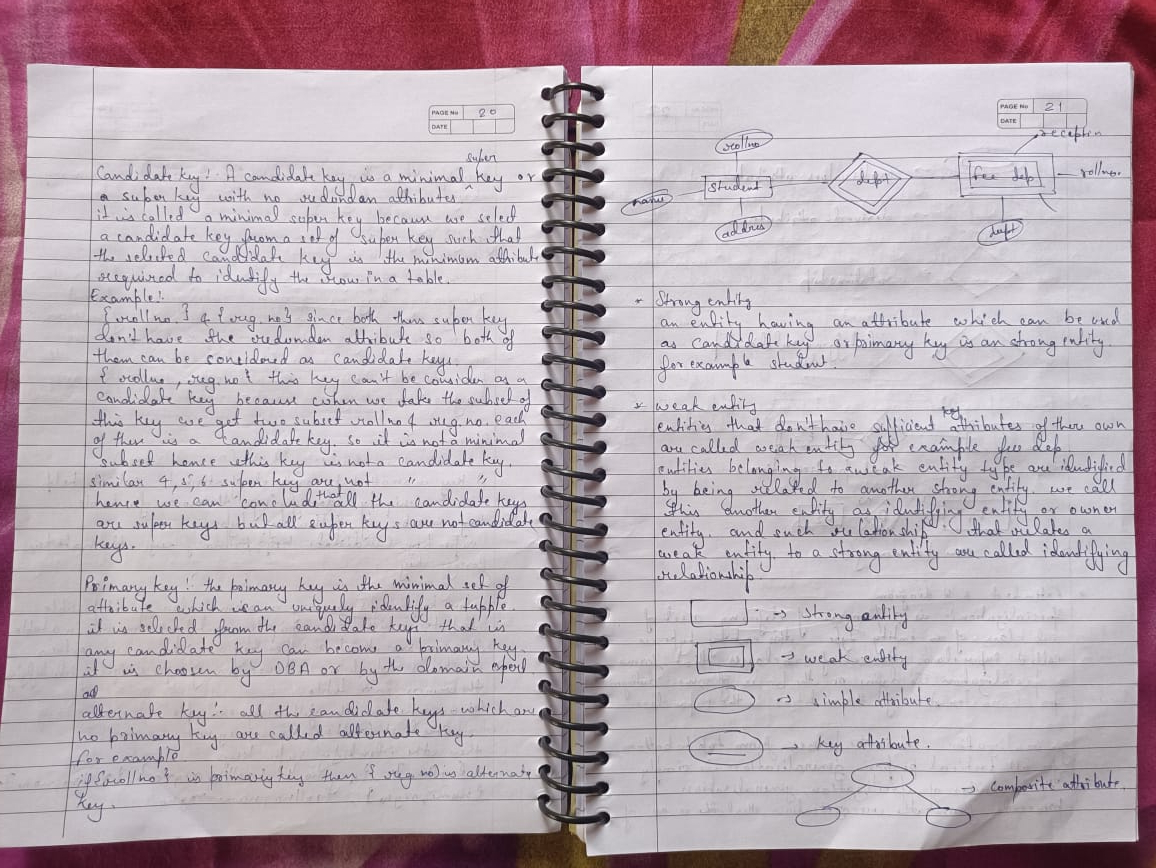 PAGE No 20
DATE
super
Candidate key : A candidate key is a minimal ^ key or
a super key with no redundan attributes
it is called a minimal super key because we select
a candidate key from a set of super key such that
the selected candidate key is the minimum attribute
required to identify the row in a table.
Example :
{ rollno } & { reg. no } since both this super key
don't have the redumden attribute so both of
them can be considered as candidate keys.
{ rollno , reg. no } this key can't be consider as a
candidate key because when we take the subset of
this key we get two subset rollno & reg. no. each
of them is a candidate key. so it is not a minimal
subset hence this key is not a candidate key.
similar 4, 5, 6 super key are not " "
that
hence we can conclude all the candidate keys
are super keys but all super keys are not candidate
keys.
Primary key : the primary key is the minimal set of
attribute which is an uniquely identify a tupple
it is selected from the candidate keys that is
any candidate key can become a primary key
it is choosen by DBA or by the domain
alternate key : all the candidate keys which are
no primary key are called alternate key.
for example
if {rollno } is primary key then { reg no } is alternate
key.
PAGE No 21
DATE
rollno
name
student
address
dept
fee dep
rollno
dept
* Strong entity
an entity having an attribute which can be used
as candidate key or primary key is an strong entity.
for example student.
* weak entity
key
entities that don't have sufficient attributes of there own
are called weak entity for example fee dep
entities belonging to a weak entity type are identified
by being related to another strong entity we call
this another entity as identifying entity or owner
entity. and such relationship that relates a
weak entity to a strong entity are called identifying
relationship.
→ strong entity
→ weak entity
→ simple attribute.
→ key attribute.
→ composite attribute.